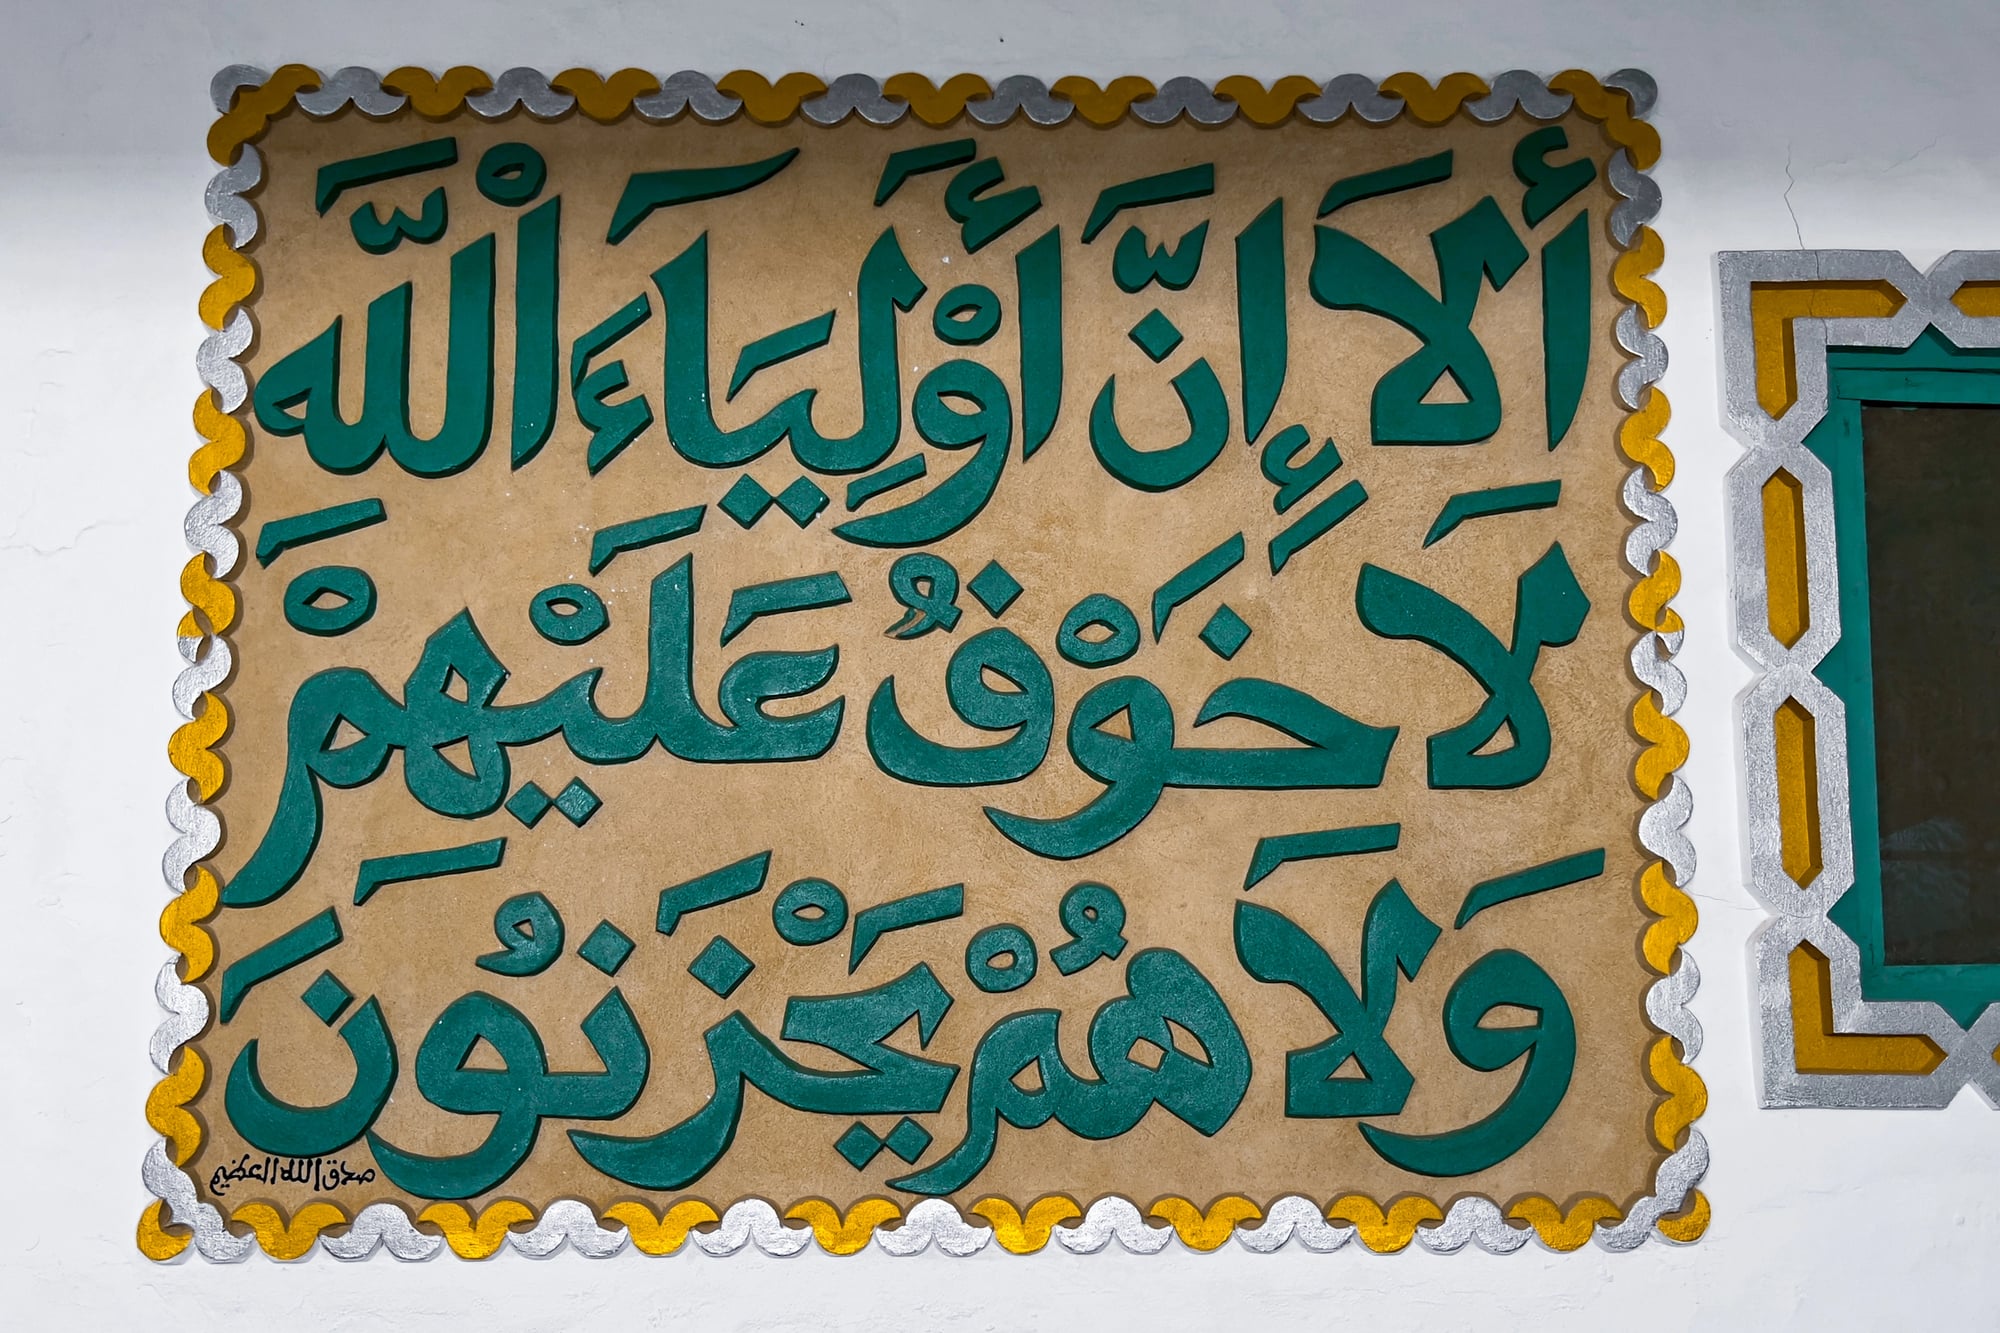 أَلَا إِنَّ أَوْلِيَآءَ اْللَّهِ
لَا خَوْفٌ عَلَيْهِمْ
وَلَا هُمْ يَحْزَنُونَ
صدق الله العظيم